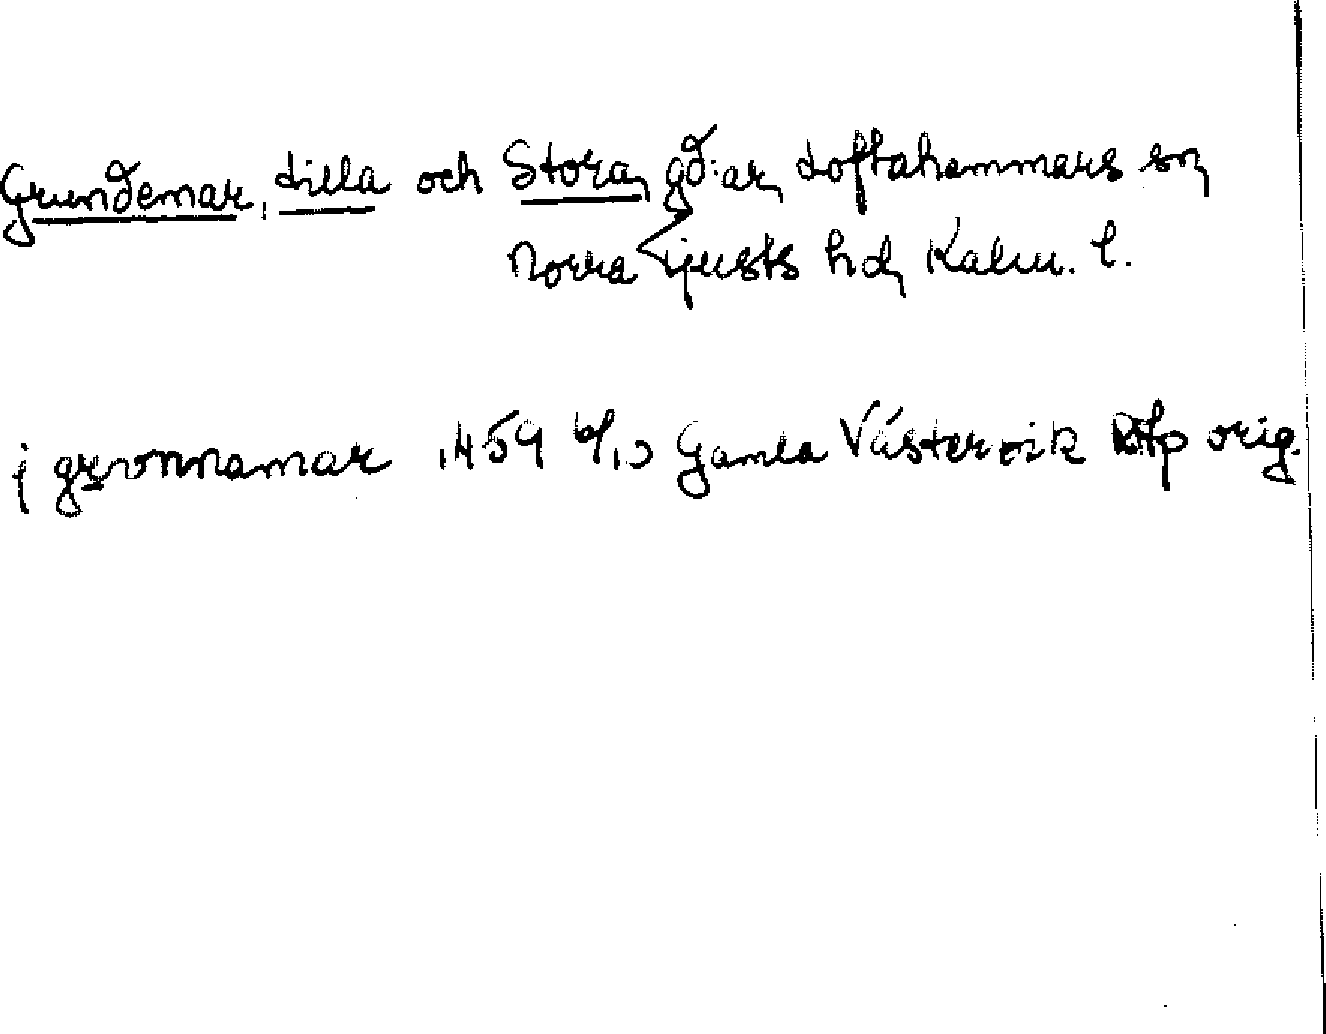 Grundemar, Lilla och Stora, gd:ar, Loftahammars sn,
Norra Tjusts hd, Kalm. l.
j grvnnamar 1459 6/10 Gamla Västervik RAp orig.